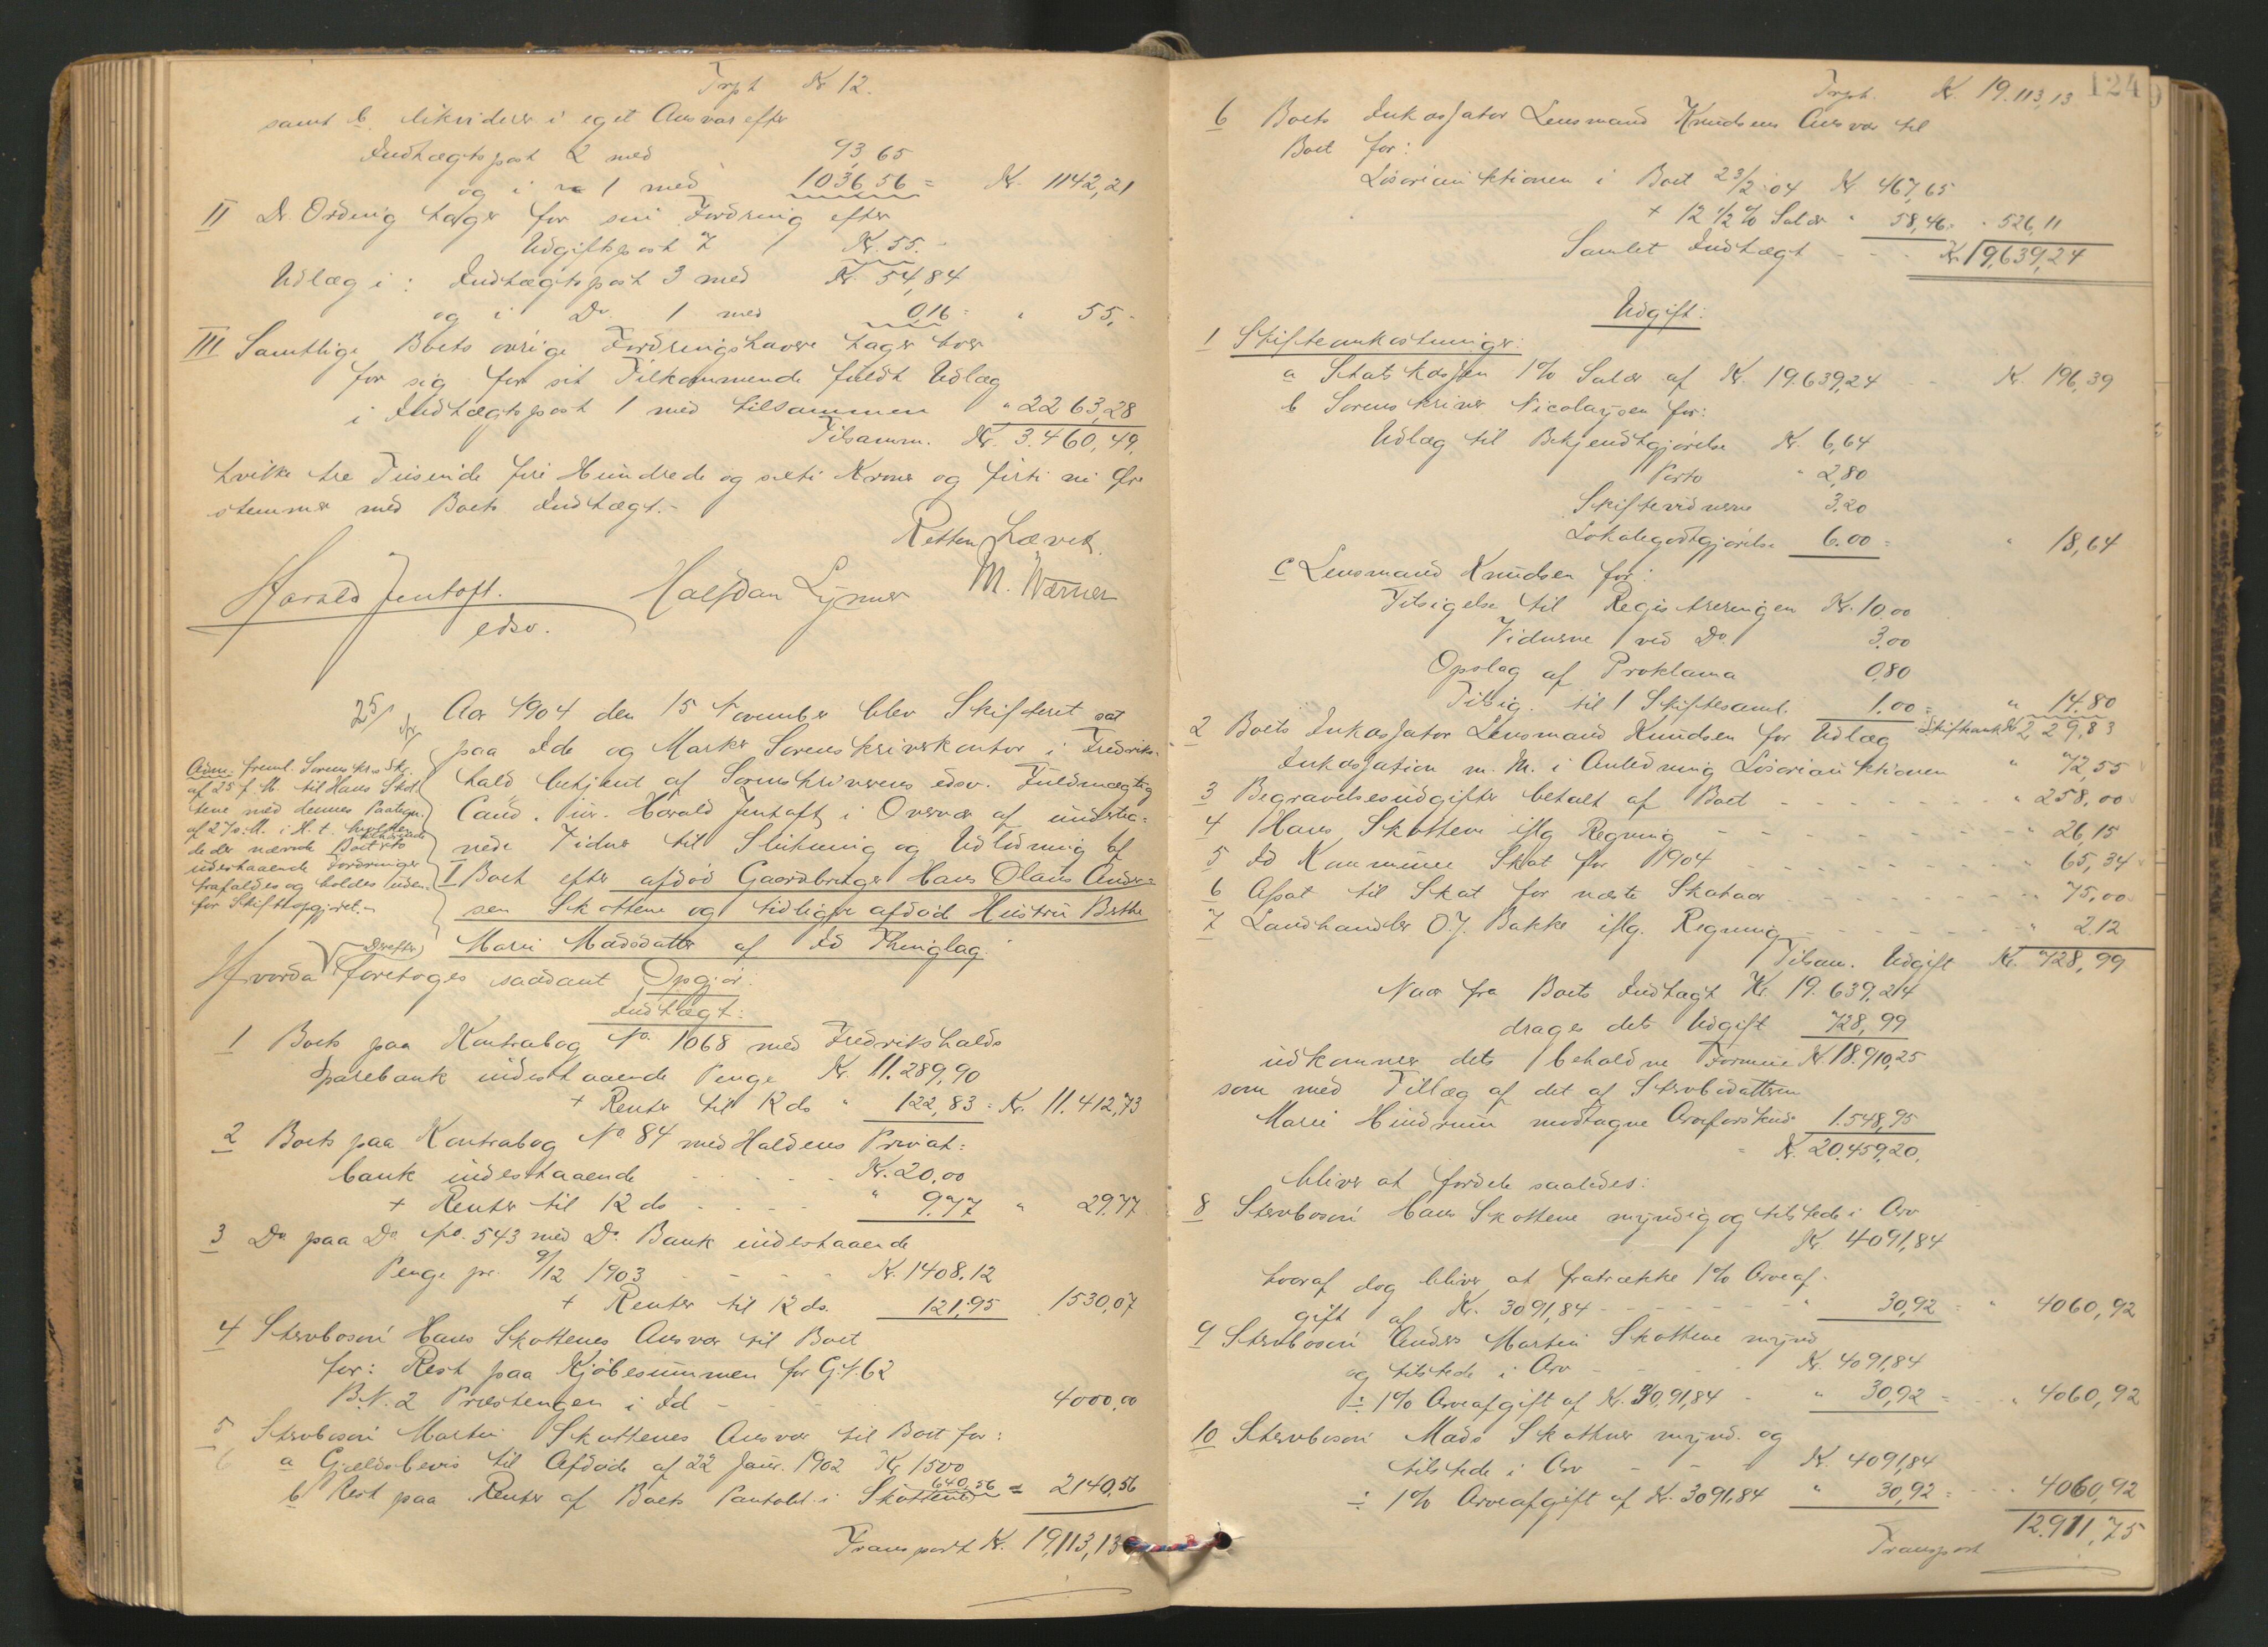 Trpt Kr 12.
samt b. likviderer i eget Ansvar efter
Indtægtspost 2 med 93,65
og i 1 med 1036,56 = Kr. 1142,21
II Dr. Ording tager for sin Fordring efter
Udgiftspost 7 Kr. 55.-
Udlæg i: Indtægtspost 3 med Kr. 54,84
og i Do 1 med 0,16 = " 55,-
III Samtlige Boets øvrige Fordringshavere tager hver
for sig for sit Tilkommende fuldt Udlæg
i Indtægtspost 1 med tilsammen " 2263,28
Tilsamm. Kr. 3.460,49,
hvilke tre Tusinde fire Hundrede og sexti Kroner og firti ni Øre
stemmer med Boets Indtægt.-
Retten hævet.
Harald Jentoft. Halfdan Lynner M. Werner
edsv.
Aar 1904 den 15 November blev Skifteret sat
paa Ide og Marker Sorenskriverkontor i Fredriks-
hald betjent af Sorenskriverens edsv. Fuldmægtig
Cand. jur. Harald Jentoft i Overvær af underteg-
nede Vidner til Slutning og Udlodning af
I Boet efter afdød Gaardbruger Hans Olaus Ander-
sen Skottene og tidligere afdød Hustru Berthe
Marie Madsdatter af Id Thinglag
Adm. freml. Sorenskr.s Skr.
af 25 f. M. til Hans Skot
tene med dennes Paategn.
af 27 s. M. i H. t. hvilken
de der nævnte Boet
udestaaende Fordringer
frafaldes og holdes uden-
for Skifteopgjøret.-
Hvorda Derefter foretoges saadant Opgjør:
Indtægt:
1 Boets paa Kontrabog No. 1068 med Fredrikshalds
Sparebank indestaaende Penge Kr. 11.289,90
+ Renter til 12 ds " 122,83 = Kr. 11.412,73
2 Boets paa Kontrabog No 84 med Haldens Privat-
bank indestaaende - - - - - Kr. 20,00
+ Renter til 12 ds - - - - " 9,77 " 29,77
3 Do paa Do No. 543 med Do. Bank indestaaende
Penge pr. 9/12 1903 - - - - Kr. 1408,12
+ Renter til 12 ds. 121,95 1530,07
4 Stervbosøn Hans Skottenes Ansvar til Boet
for: Rest paa Kjøbesummen for G.N. 62
B.N. 2 Præstengen i Id - - - - 4000,00
5 Stervbosøn Martin Skottenes Ansvar til Boet for:
a Gjældsbevis til Afdøde af 22 Janr. 1902 Kr 1500
b Rest paa Renter af Boets Pantobl. i Skottene 640,56 = 2140,56
Transport Kr. 19,113,13
124
Trpt. Kr. 19.113,13
6 Boets Inkassator Lensmand Knudsens Ansvar til
Boet for:
Løsøreauktionen i Boet 23/2 04 Kr 467,65
+ 12 1/2 % Salær " 58,46 = " 526,11
Samlet Indtægt - - - Kr 19,639,24
Udgift:
1 Skifteomkostninger:
a Statskassen 1% Salær af Kr. 19.639,24 - - Kr. 196,39
b Sorenskriver Nicolaysen for:
Udlæg til Bekjendtgjørelse Kr. 6,64
Porto " 2,80
Skiftevidnerne 3,20
Lokalegodtgjørelse 6.00 = " 18,64
c Lensmand Knudsen for:
Tilsigelse til Registreringen Kr. 10.00
Vidnerne ved Do 3.00
Opslag af Proklama 0,80
Tilsig. til 1 Skiftesaml. 1.00 = " 14,80
2 Boets Inkassator Lensmand Knudsen for Udlæg Skifteomk. Kr 229,83
Inkassation m. M. i Anledning Løsøreauktionen " 72,55
3 Begravelsesudgifter betalt af Boet - - - - - - " 258,00
4 Hans Skottene iflg Regning - - - - - - - " 26,15
5 Id Kommune Skat for 1904 - - - - - - " 65,34
6 Afsat til Skat for næste Skataar - - - - - 75,00
7 Landhandler O. J. Bakke iflg. Regning - - - - - " 2.12
Tilsam. Udgift Kr. 728,99
Naar fra Boets Indtægt Kr. 19.639,24
drages dets Udgift 728,99
udkommer dets behaldne Formue Kr. 18.910,25
som med Tillæg af det af Stervbodatteren
Marie Hindrum modtagne Arveforskud 1.548,95
= Kr. 20.459,20,
bliver at fordele saaledes:
8 Stervbosøn Hans Skottene myndig og tilstede i Arv
Kr. 4091,84
hvoraf dog bliver at fratrække 1% Arveaf-
gift af Kr. 3091,84 - - - - - - - " 30,92 = " 4060,92
9 Stervbosøn Anders Martin Skottene mynd
og tilstede i Arv - - - - Kr. 4091,84
÷ 1% Arveafgift af Kr. 3091,84 - " 30,92 = - - " 4060,92
10 Stervbosøn Mads Skottene mynd. og
tilstede i Arv - - - Kr. 4091,84
÷ 1% Arveafgift af Kr. 3091,84 " 30,92 = - - - 4060,92
Transport 12.911,75